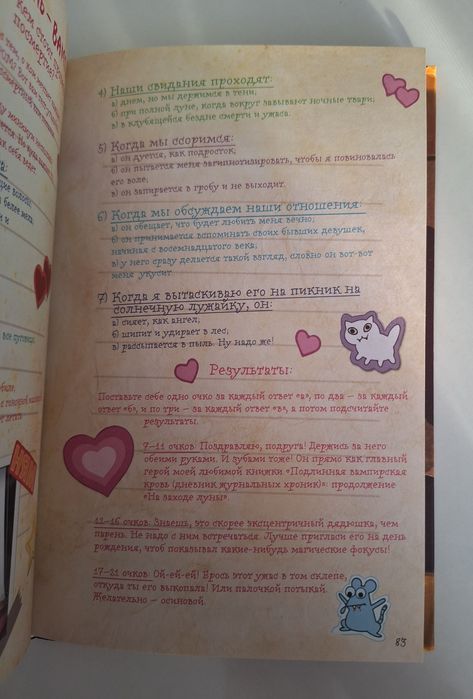 4) Наши свидания проходят:
а) днем, но мы держимся в тени;
б) при полной луне, когда вокруг завывают ночные твари;
в) в клубящейся бездне смерти и ужаса.
5) Когда мы ссоримся:
а) он дуется, как подросток;
б) он пытается меня загипнотизировать, чтобы я повиновалась
его воле;
в) он запирается в гробу и не выходит.
6) Когда мы обсуждаем наши отношения:
а) он обещает, что будет любить меня вечно;
б) он принимается вспоминать своих бывших девушек,
начиная с восемнадцатого века;
в) у него сразу делается такой взгляд, словно он вот-вот
меня укусит.
7) Когда я вытаскиваю его на пикник на
солнечную лужайку, он:
а) сияет, как ангел;
б) шипит и удирает в лес;
в) рассыпается в пыль. Ну надо же!
Результаты:
Поставьте себе одно очко за каждый ответ «а», по два – за каждый
ответ «б», и по три – за каждый ответ «в», а потом подсчитайте
результаты.
7–11 очков: Поздравляю, подруга! Держись за него
обеими руками. И зубами тоже! Он прямо как главный
герой моей любимой книжки «Подлинная вампирская
кровь (дневник журнальных хроник)»: продолжение
«На заходе луны».
12–16 очков: Знаешь, это скорее эксцентричный дядюшка, чем
парень. Не надо с ним встречаться. Лучше пригласи его на день
рождения, чтоб показывал какие-нибудь магические фокусы!
17–21 очков: Ой-ей-ей! Брось этот ужас в том склепе,
откуда ты его выкопала! Или палочкой потыкай.
Желательно – осиновой.
83